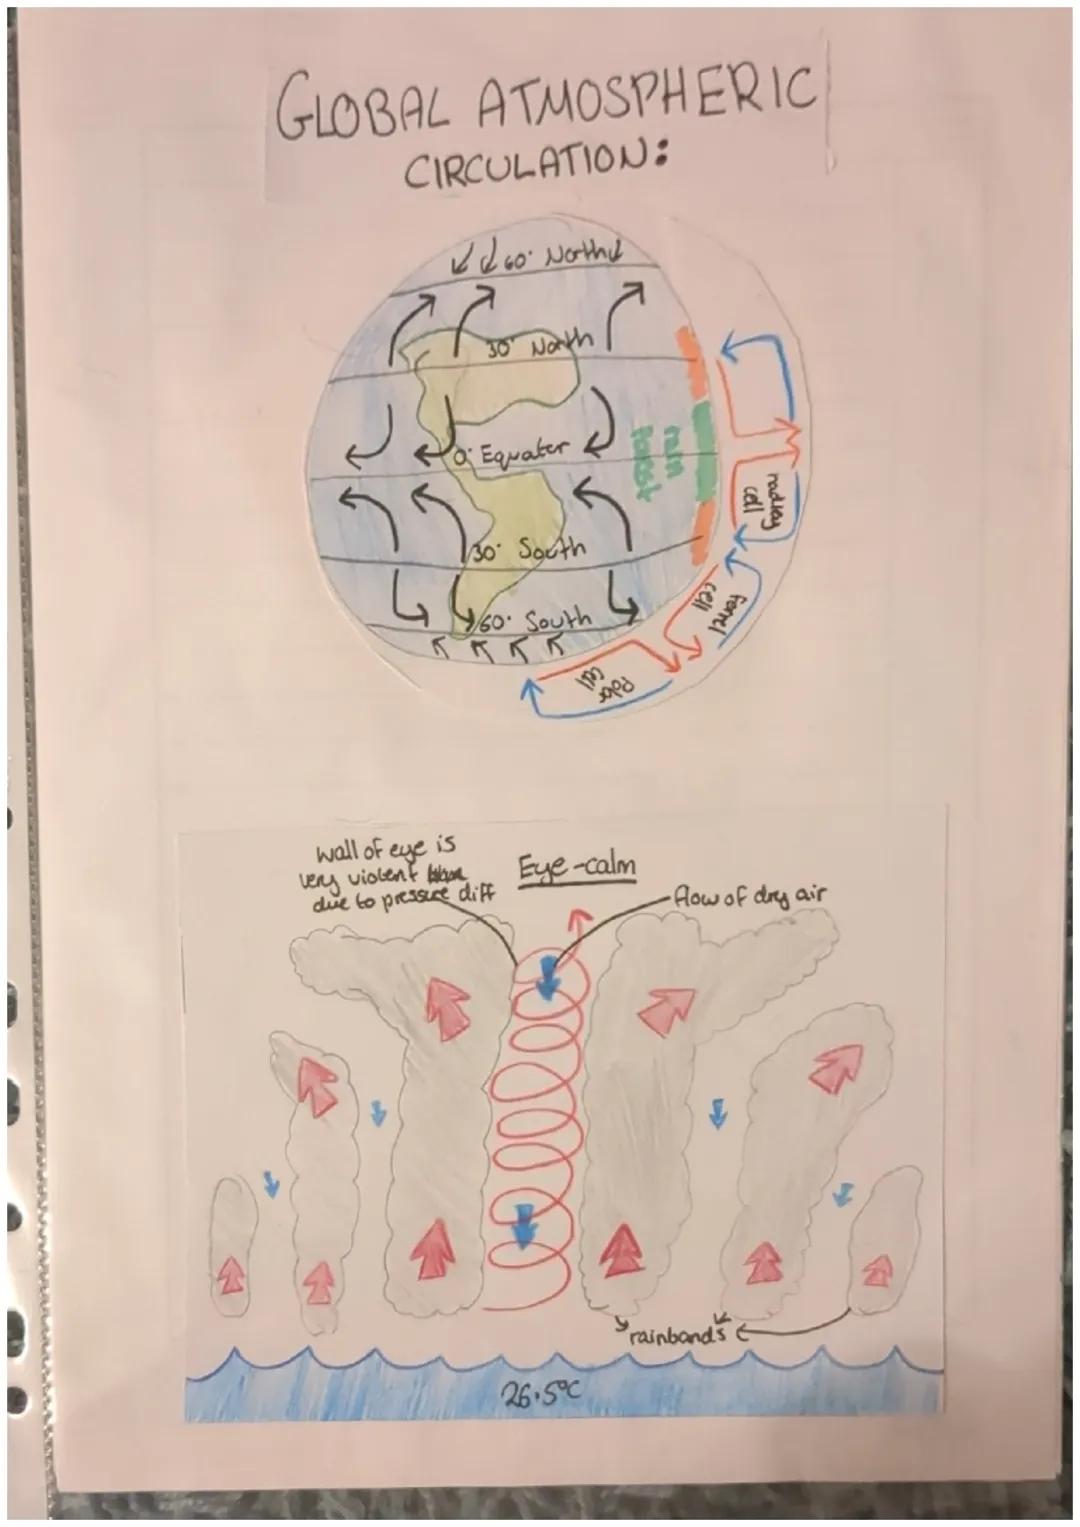 GLOBAL ATMOSPHERIC
CIRCULATION:
60° North
30° North
0° Equator
rain
forest
hadley
cell
30° South
ferrel
cell
60° South
Polar
cell
wall of eye is
very violent
due to pressure diff
Eye-calm
flow of dry air
rainbands
26.5°C